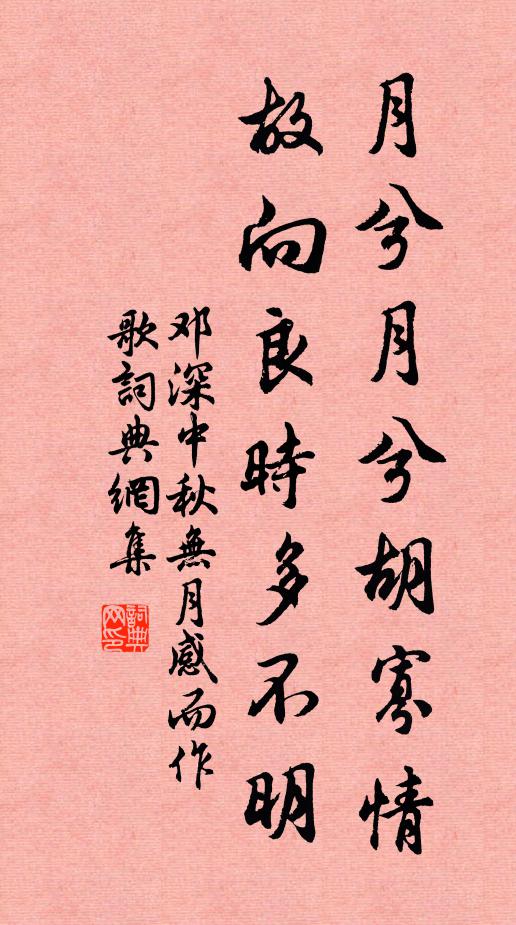 月兮月兮胡寡情
故向良時多不明
邓深中秋無月感而作
歌詞典網集
詞典网印